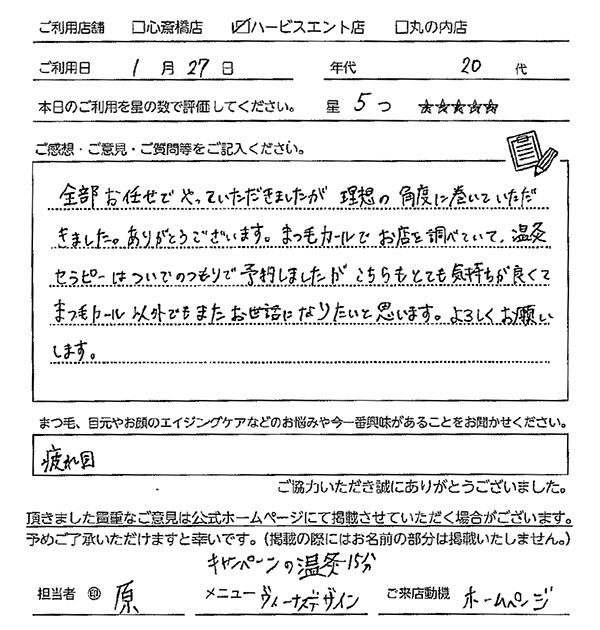 ご利用店舗 □心斎橋店 ☑ハービスエント店 □丸の内店
ご利用日 1月27日 年代 20代
本日のご利用を星の数で評価してください。 星 5つ ★★★★★
ご感想・ご意見・ご質問等をご記入ください。
全部お任せでやっていただきましたが 理想の角度に巻いていただ
きました。ありがとうございます。まつ毛カールでお店を調べていて、温灸
セラピーはついでのつもりで予約しましたが こちらもとても気持ちが良くて
まつ毛カール以外でもまたお世話になりたいと思います。よろしくお願い
します。
まつ毛、目元やお顔のエイジングケアなどのお悩みや今一番興味があることをお聞かせください。
疲れ目
ご協力いただき誠にありがとうございました。
頂きました貴重なご意見は公式ホームページにて掲載させていただく場合がございます。
予めご了承いただけますと幸いです。(掲載の際にはお名前の部分は掲載いたしません。)
キャンペーンの温灸15分
担当者 ㊞ 原 メニュー ヴィーナスデザイン ご来店動機 ホームページ